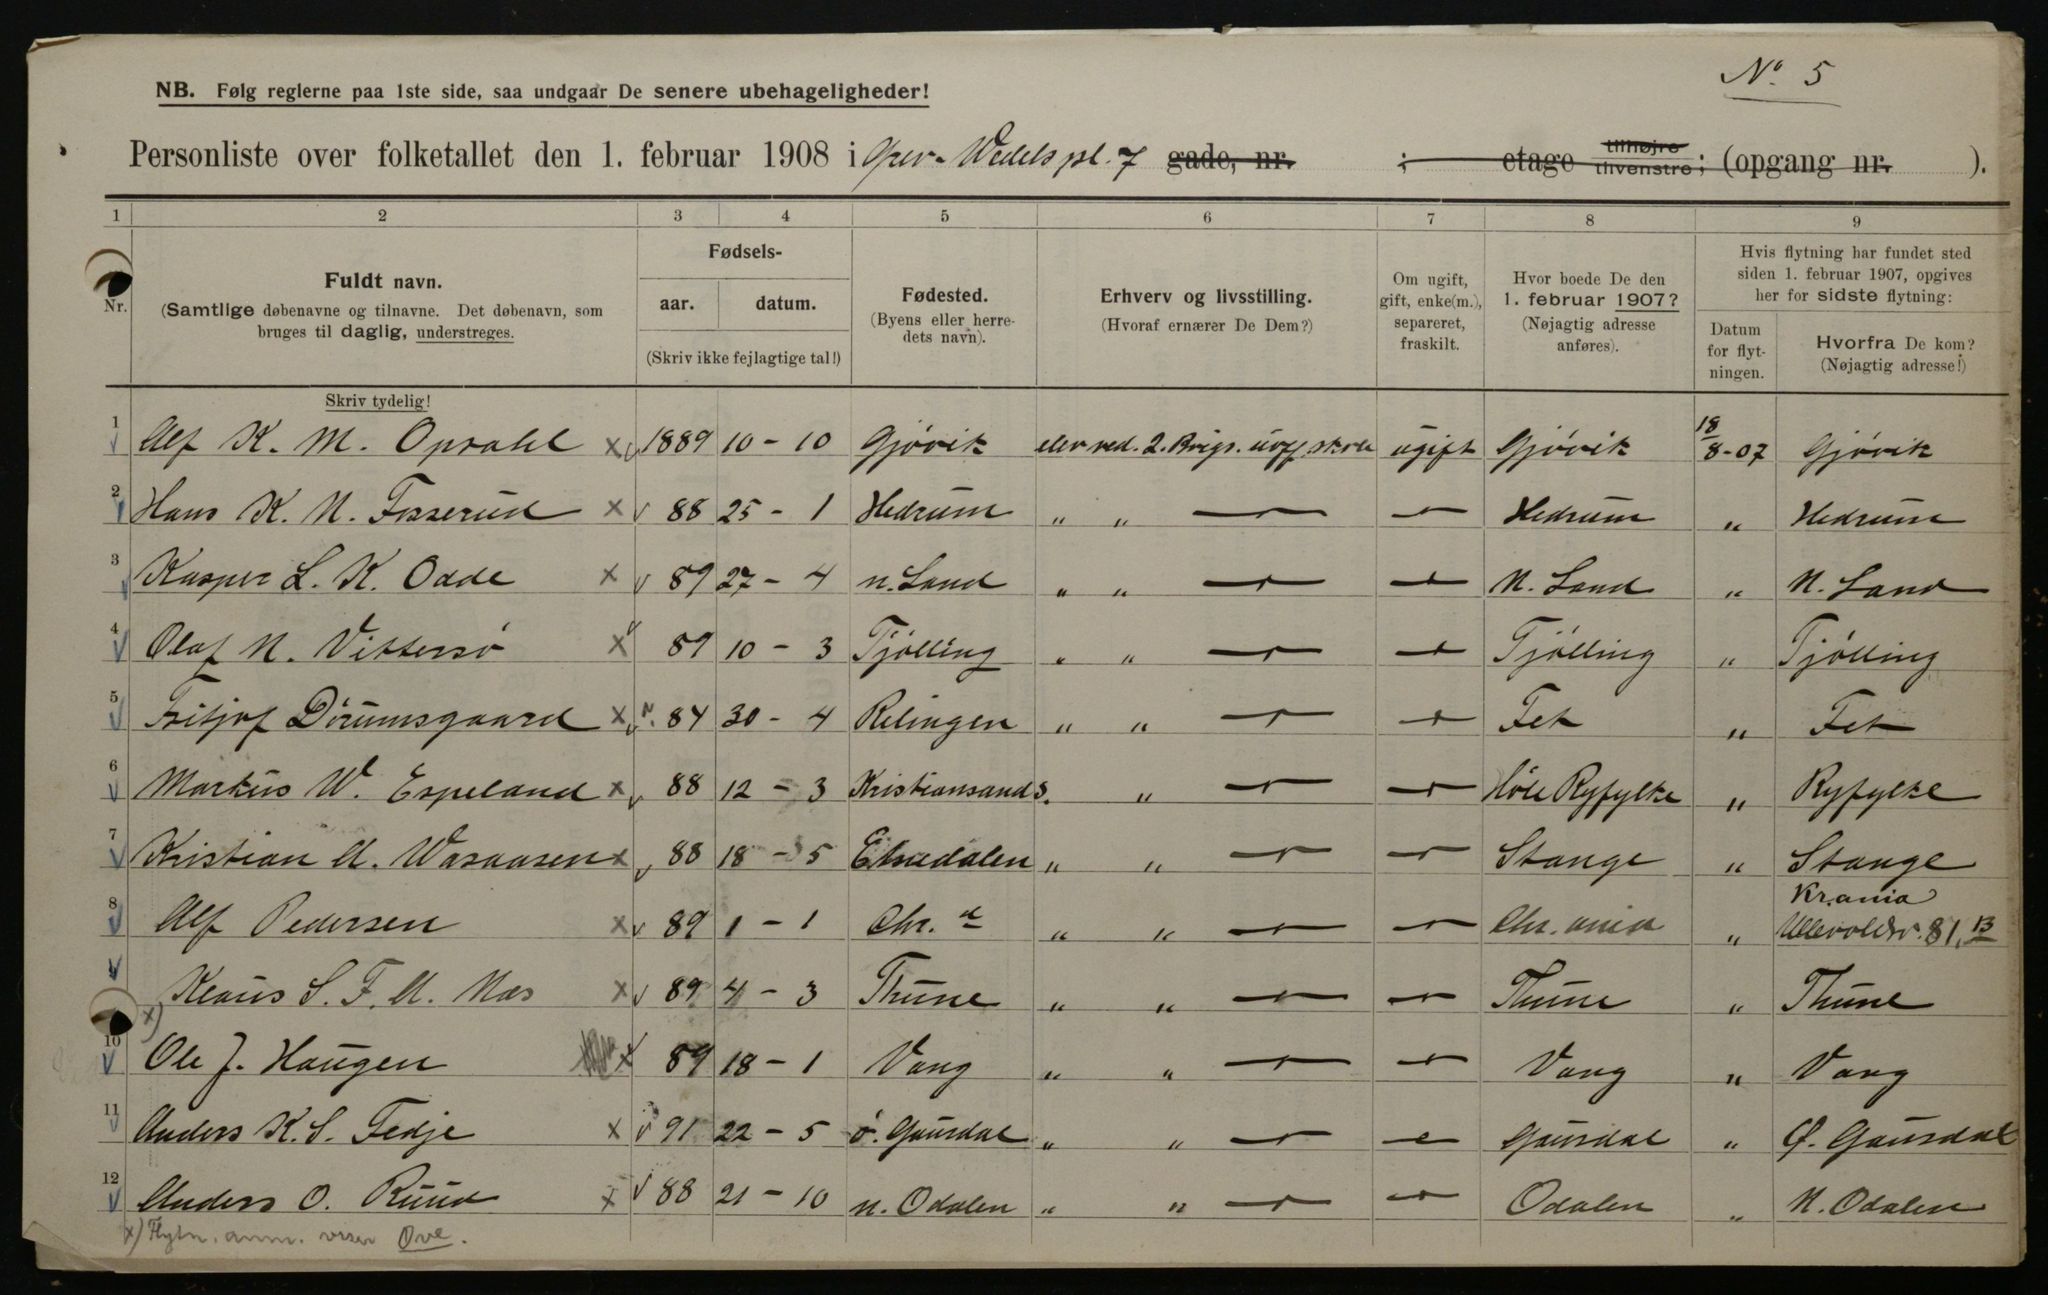 Nº 5
NB. Følg reglerne paa 1ste side, saa undgaar De senere ubehageligheder!
Personliste over folketallet den 1. februar 1908 i Grev-Wedels pl. 7 gade, nr. ; etage tilhøjre tilvenstre; (opgang nr. ).
1 2 3 4 5 6 7 8 9
Nr.
Fuldt navn.
(Samtlige døbenavne og tilnavne. Det døbenavn, som
bruges til daglig, understreges.
Fødsels-
aar. datum.
(Skriv ikke fejlagtige tal!)
Fødested.
(Byens eller herre-
dets navn).
Erhverv og livsstilling.
(Hvoraf ernærer De Dem?)
Om ugift,
gift, enke(m.),
separeret,
fraskilt.
Hvor boede De den
1. februar 1907?
(Nøjagtig adresse
anføres).
Hvis flytning har fundet sted
siden 1. februar 1907, opgives
her for sidste flytning:
Datum
for flyt-
ningen.
Hvorfra De kom?
(Nøjagtig adresse!)
Skriv tydelig!
1 Alf K. M. Opsahl x 1889 10 - 10 Gjövik elev ved. 2. Brigs. uoff. skole ugift Gjövik 18/8-07 Gjövik
2 Hans K. N. Fosserud x 88 25 - 1 Hedrum " " — — Hedrum " Hedrum
3 Kasper L. K. Odde x 89 27 - 4 n. Land " " — — N. Land " N. Land
4 Olaf N. Vittersö x 89 10 - 3 Tjölling " " — — Tjölling " Tjölling
5 Fritjof Dörumsgaard x 84 30 - 4 Relingen " " — — Fet " Fet
6 Markus W. Espeland x 88 12 - 3 Kristiansand S. " — — Höle Ryfylke " Ryfylke
7 Kristian A. Wasaasen x 88 18 - 5 Elvedalen " " — — Stange " Stange
8 Alf Pedersen x 89 1 - 1 Chr. a " " — — Chr. ania " Kr.ania
Ullevoldsv. 81, B
9 Klaus S. F. A. Næs x 89 4 - 3 Thune " " — — Thune " Thune
x)
10 Ole J. Haugen x 89 18 - 1 Vang " " — — Vang " Vang
11 Anders K. S. Fedje x 91 22 - 5 ö. Gausdal " " — — Gausdal " Ø. Gausdal
12 Anders O. Ruud x 88 21 - 10 n. Odalen " " — — Odalen " N. Odalen
x) Flytn. anm. viser Ove.